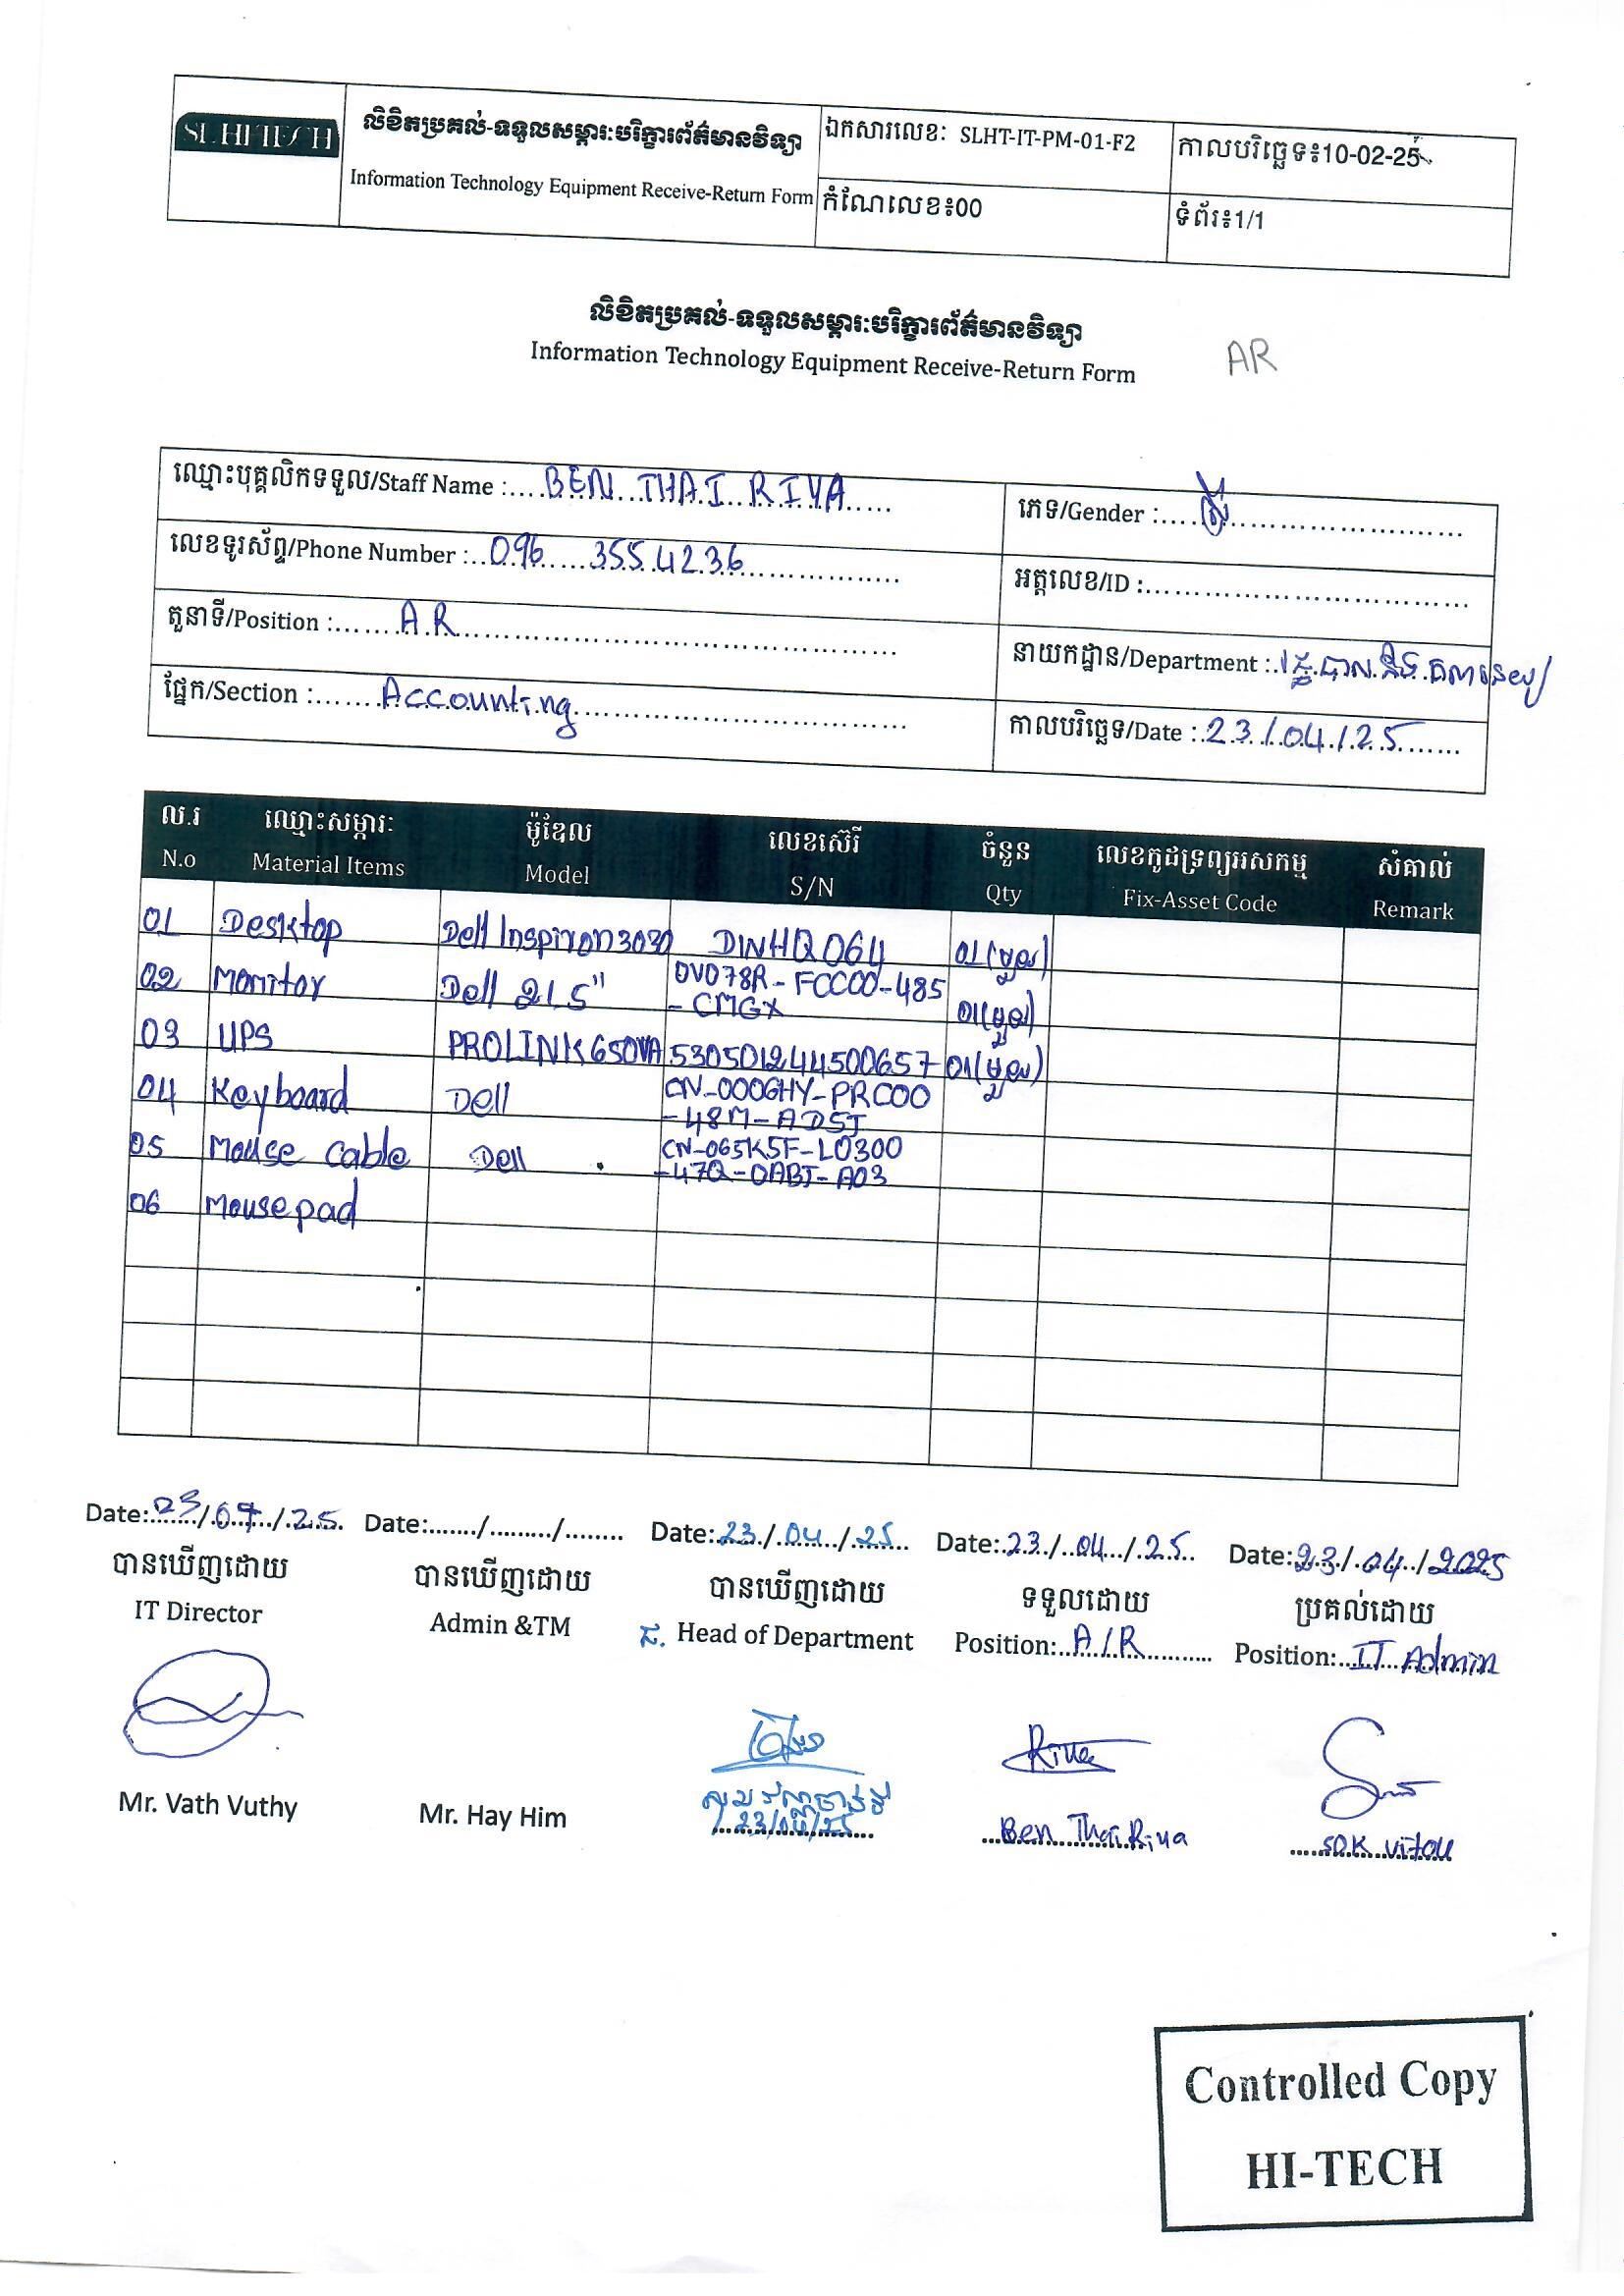 SL HI TECH
លិខិតប្រគល់-ទទួលសម្ភារៈបរិក្ខារព័ត៌មានវិទ្យា
Information Technology Equipment Receive-Return Form
ឯកសារលេខ: SLHT-IT-PM-01-F2
កាលបរិច្ឆេទ៖10-02-25
កំណែលេខ៖00
ទំព័រ៖1/1
លិខិតប្រគល់-ទទួលសម្ភារៈបរិក្ខារព័ត៌មានវិទ្យា
Information Technology Equipment Receive-Return Form
AR
ឈ្មោះបុគ្គលិកទទួល/Staff Name : BEN THAI RIYA
ភេទ/Gender : ស្រី
លេខទូរស័ព្ទ/Phone Number : 096 355 4236
អត្តលេខ/ID :
តួនាទី/Position : AR
នាយកដ្ឋាន/Department : និង
ផ្នែក/Section : Accounting
កាលបរិច្ឆេទ/Date : 23/04/25
ល.រ ឈ្មោះសម្ភារៈ ម៉ូឌែល លេខស៊េរី ចំនួន លេខកូដទ្រព្យអសកម្ម សំគាល់
N.o Material Items Model S/N Qty Fix-Asset Code Remark
01 Desktop Dell Inspiron 3030 DWHQ064 01(មួយ)
02 Monitor Dell 21.5" 0V078R-FCC00-485
-CMGX 01(មួយ)
03 UPS PROLINK650VA 530501244500657 01(មួយ)
04 Keyboard Dell CN-0006HY-PRC00
-48M-ADSJ
05 Mouse cable Dell CN-065K5F-L0300
-47Q-0ABJ-A03
06 Mouse pad
Date: /25 Date:......./........./........ Date: 23/04/25 Date: 23/04/25 Date: 23/04/2025
បានឃើញដោយ បានឃើញដោយ បានឃើញដោយ ទទួលដោយ ប្រគល់ដោយ
IT Director Admin &TM Head of Department Position: A/R Position: IT Admin
Riya
Mr. Vath Vuthy Mr. Hay Him 23/04/25 Ben ThaiRiya SOK Vitou
Controlled Copy
HI-TECH